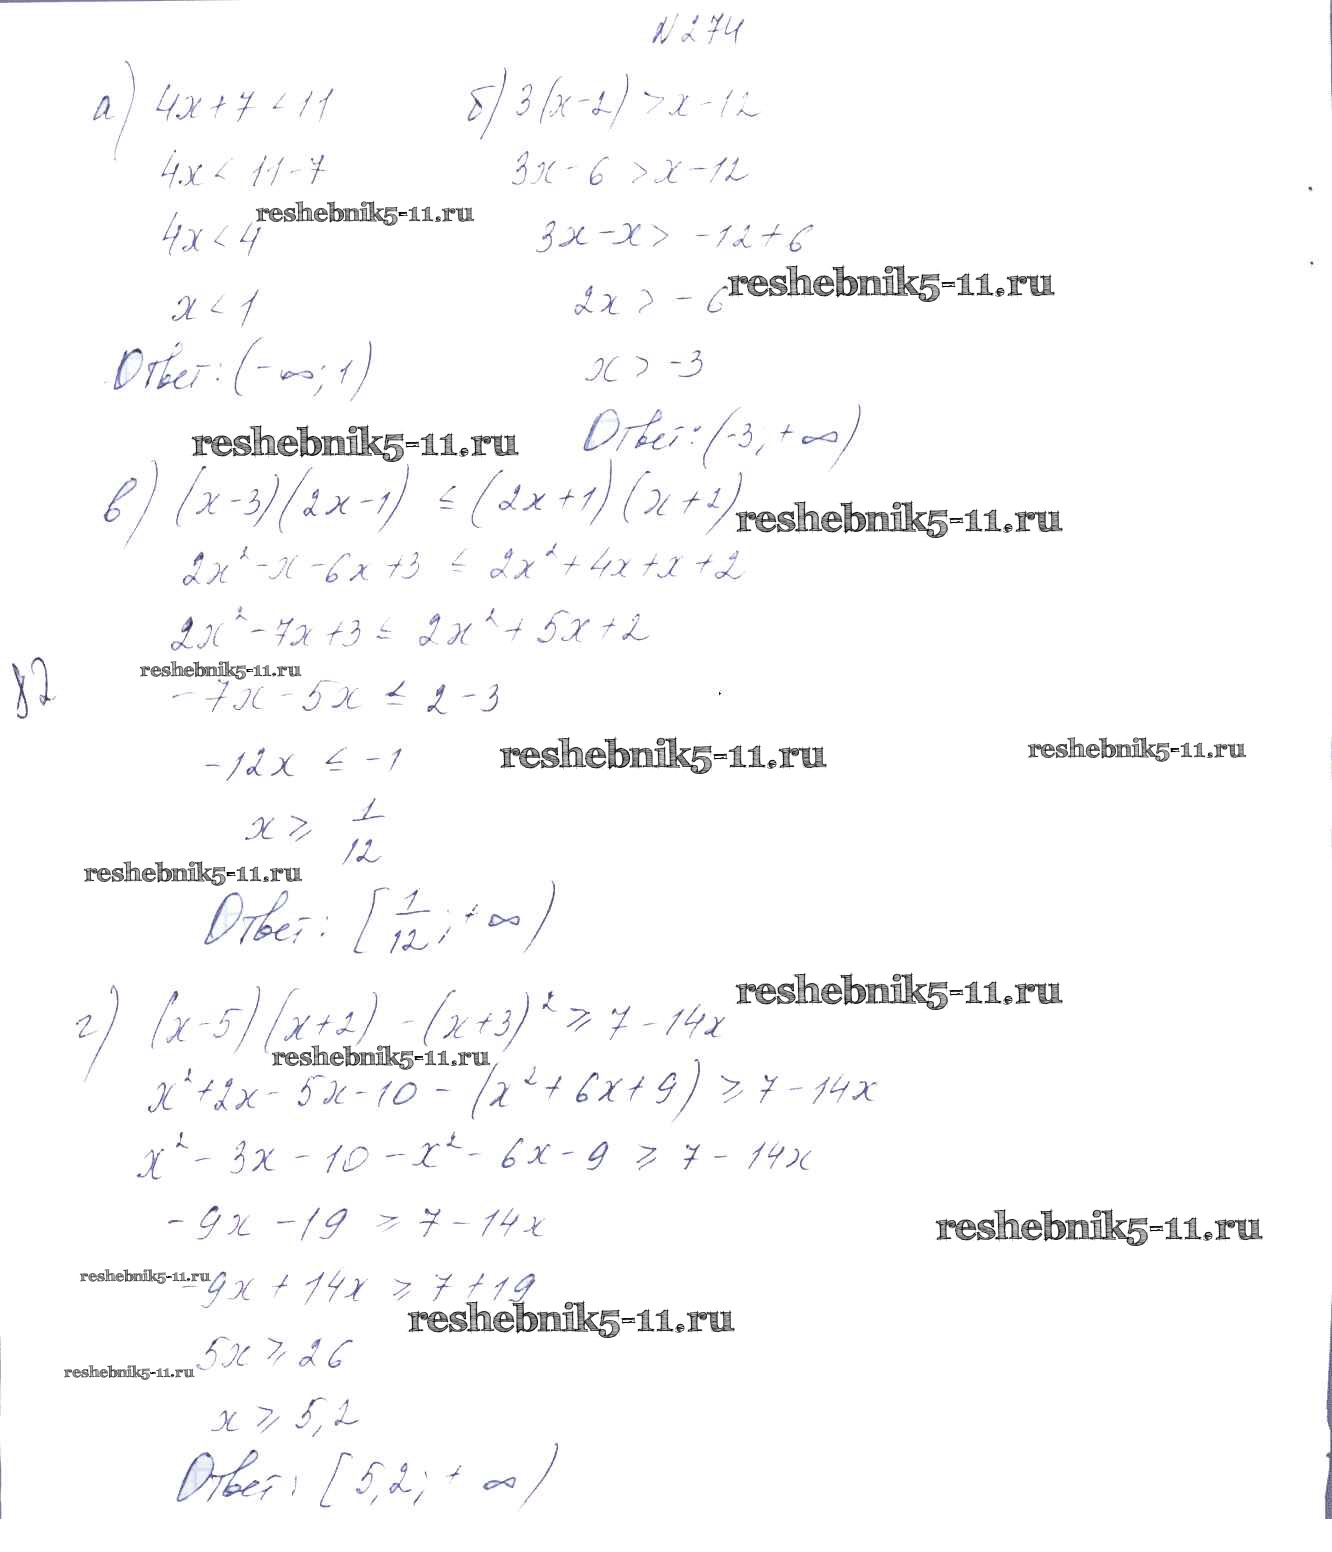 N 274
а) 4x + 7 < 11
4x < 11 - 7
reshebnik5-11.ru
4x < 4
x < 1
Ответ: (-∞; 1)
б) 3(x - 2) > x - 12
3x - 6 > x - 12
3x - x > -12 + 6
reshebnik5-11.ru
2x > -6
x > -3
Ответ: (-3; +∞)
reshebnik5-11.ru
в) (x - 3)(2x - 1) ≤ (2x + 1)(x + 2)
reshebnik5-11.ru
2x² - x - 6x + 3 ≤ 2x² + 4x + x + 2
2x² - 7x + 3 ≤ 2x² + 5x + 2
reshebnik5-11.ru
-7x - 5x ≤ 2 - 3
-12x ≤ -1
reshebnik5-11.ru
reshebnik5-11.ru
x ≥ 1/12
reshebnik5-11.ru
Ответ: [1/12; +∞)
reshebnik5-11.ru
г) (x - 5)(x + 2) - (x + 3)² ≥ 7 - 14x
reshebnik5-11.ru
x² + 2x - 5x - 10 - (x² + 6x + 9) ≥ 7 - 14x
x² - 3x - 10 - x² - 6x - 9 ≥ 7 - 14x
-9x - 19 ≥ 7 - 14x
reshebnik5-11.ru
reshebnik5-11.ru
-9x + 14x ≥ 7 + 19
reshebnik5-11.ru
5x ≥ 26
reshebnik5-11.ru
x ≥ 5,2
Ответ: [5,2; +∞)